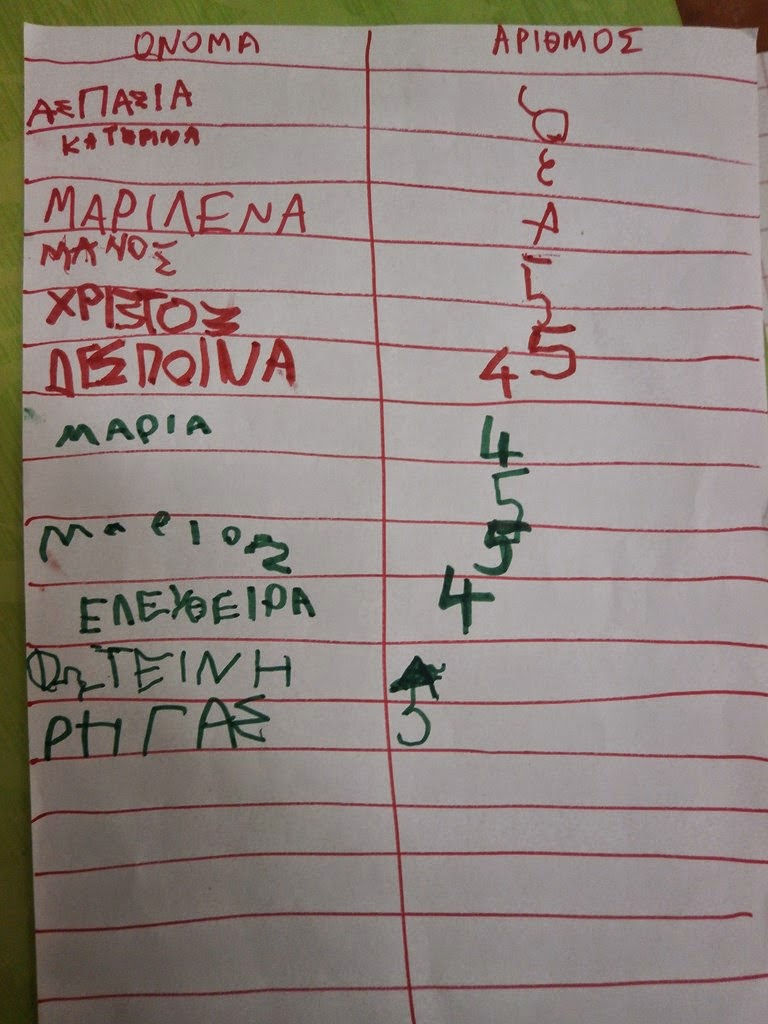 ΟΝΟΜΑ ΑΡΙΘΜΟΣ
ΑΣΠΑΣΙΑ
ΚΑΤΕΡΙΝΑ
ΜΑΡΙΛΕΝΑ 4
ΜΑΝΟΣ 5
ΧΡΙΣΤΟΣ 5
ΔΕΣΠΟΙΝΑ 4
ΜΑΡΙΑ 4
5
Μαριος 5
ΕΛΕΥΘΕΙΡΑ 4
ΦΩΤΕΙΝΗ
ΡΗΓΑΣ 5